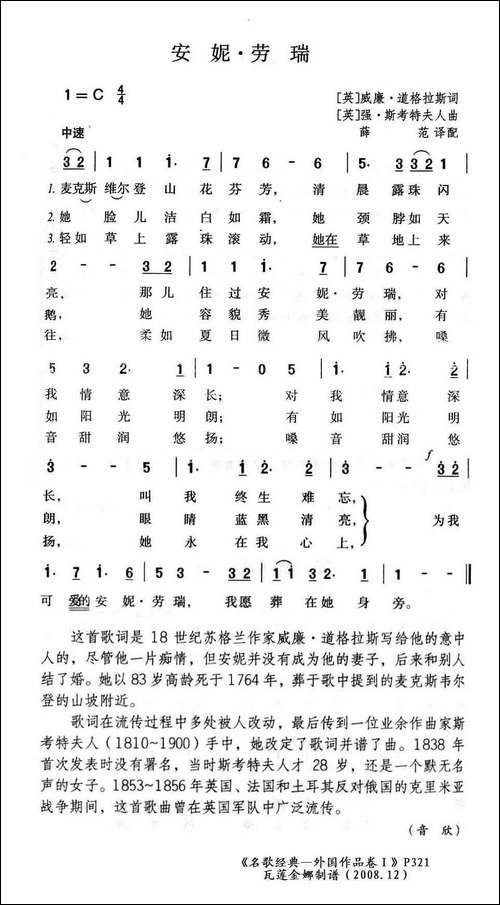 安 妮·劳 瑞
1=C 4/4
[英]威廉·道格拉斯词
[英]强·斯考特夫人曲
中速
薛 范 译配
3 2 | 1 1 1· 7 | 7 6 - 6 | 6 5· 3 3 2 1 |
1. 麦克斯 维尔 登 山 花 芬 芳， 清 晨 露 珠 闪
2. 她 脸 儿 洁 白 如 霜， 她 颈 脖 如 天
3. 轻如 草 上 露 珠 滚 动， 她在 草 地 上 来
2 - - 3 2 | 1 1 1· 7 | 7 6 - 6 |
亮， 那 儿 住 过 安 妮·劳 瑞， 对
鹅， 她 容 貌 秀 美 靓 丽， 有
往， 柔 如 夏 日 微 风 吹 拂， 嗓
5 3 2· 1 | 1 - 0 5 | 1· 1 2· 2 |
我 情 意 深 长； 对 我 情 意 深
如 阳 光 明 朗； 有 如 阳 光 明
音 甜 润 悠 扬； 嗓 音 甜润 悠
3 - - 5 | 1· 1 2· 2 | 3 - - 3 2 |
f
长， 叫 我 终 生 难 忘，
朗， 眼 睛 蓝 黑 清 亮， 为我
扬， 她 永 在 我 心 上，
1· 7 1· 6 | 5 3 - 3 2 | 1 1 3· 2 | 1 - - ‖
可 爱的 安 妮·劳 瑞， 我愿 葬 在 她 身 旁。
这首歌词是 18 世纪苏格兰作家威廉·道格拉斯写给他的意中
人的，尽管他一片痴情，但安妮并没有成为他的妻子，后来和别人
结了婚。她以 83 岁高龄死于 1764 年，葬于歌中提到的麦克斯韦尔
登的山坡附近。
歌词在流传过程中多处被人改动，最后传到一位业余作曲家斯
考特夫人（1810～1900）手中，她改定了歌词并谱了曲。1838 年
首次发表时没有署名，当时斯考特夫人才 28 岁，还是一个默无名
声的女子。1853～1856 年英国、法国和土耳其反对俄国的克里米亚
战争期间，这首歌曲曾在英国军队中广泛流传。
（音 欣）
《名歌经典—外国作品卷Ⅰ》P321
瓦莲金娜制谱（2008.12）